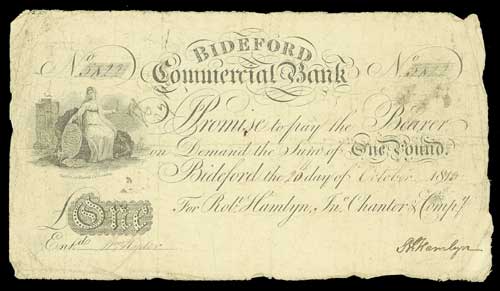 BIDEFORD
Commercial Bank
No 5822 No 5822
I Promise to pay the Bearer
on Demand the Sum of One Pound.
Bideford the 26 day of October
For Robt. Hamlyn, Jno. Chanter & Compy.
£ One
Entd.